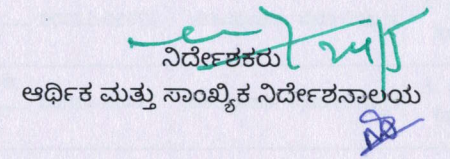 ನಿರ್ದೇಶಕರು
ಆರ್ಥಿಕ ಮತ್ತು ಸಾಂಖ್ಯಿಕ ನಿರ್ದೇಶನಾಲಯ